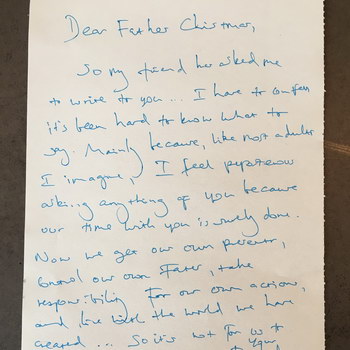 Dear Father Christmas,
So my friend has asked me
to write to you... I have to confess
it's been hard to know what to
say. Mainly because, like most adults
I imagine, I feel
asking anything of you because
our time with you is surely done.
Now we get our own presents,
our own Fates, take
responsibility for our own actions,
and live with the world we have
created... So it's not for us to
your